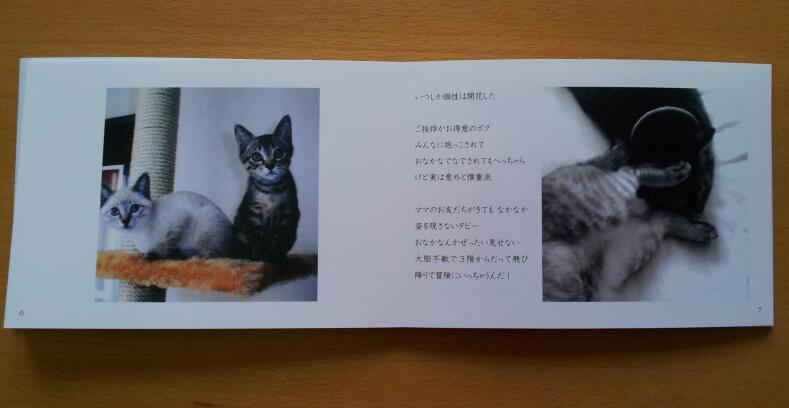 いつしか個性は開花した
ご挨拶がお得意のボク
みんなに抱っこされて
おなかなでなでされてもへっちゃら
けど実は意外と慎重派
ママのお友だちがきても なかなか
姿を現さないタビー
おなかなんかぜったい見せない
大胆不敵で3階からだって飛び
降りて冒険にいっちゃうんだ!
6
7